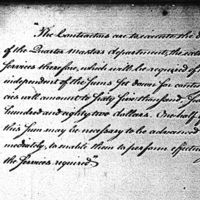 "The Contractors are to execute the d
of the Quarter masters department, the
Services therefore, which will be required of
independent of the sums set down for contin
cies will amount to sixty five thousand, 
hundred and eighty two dollars. One half of
this sum may be necessary to be advanced
mediately, to enable them to perform effectu
the services required"